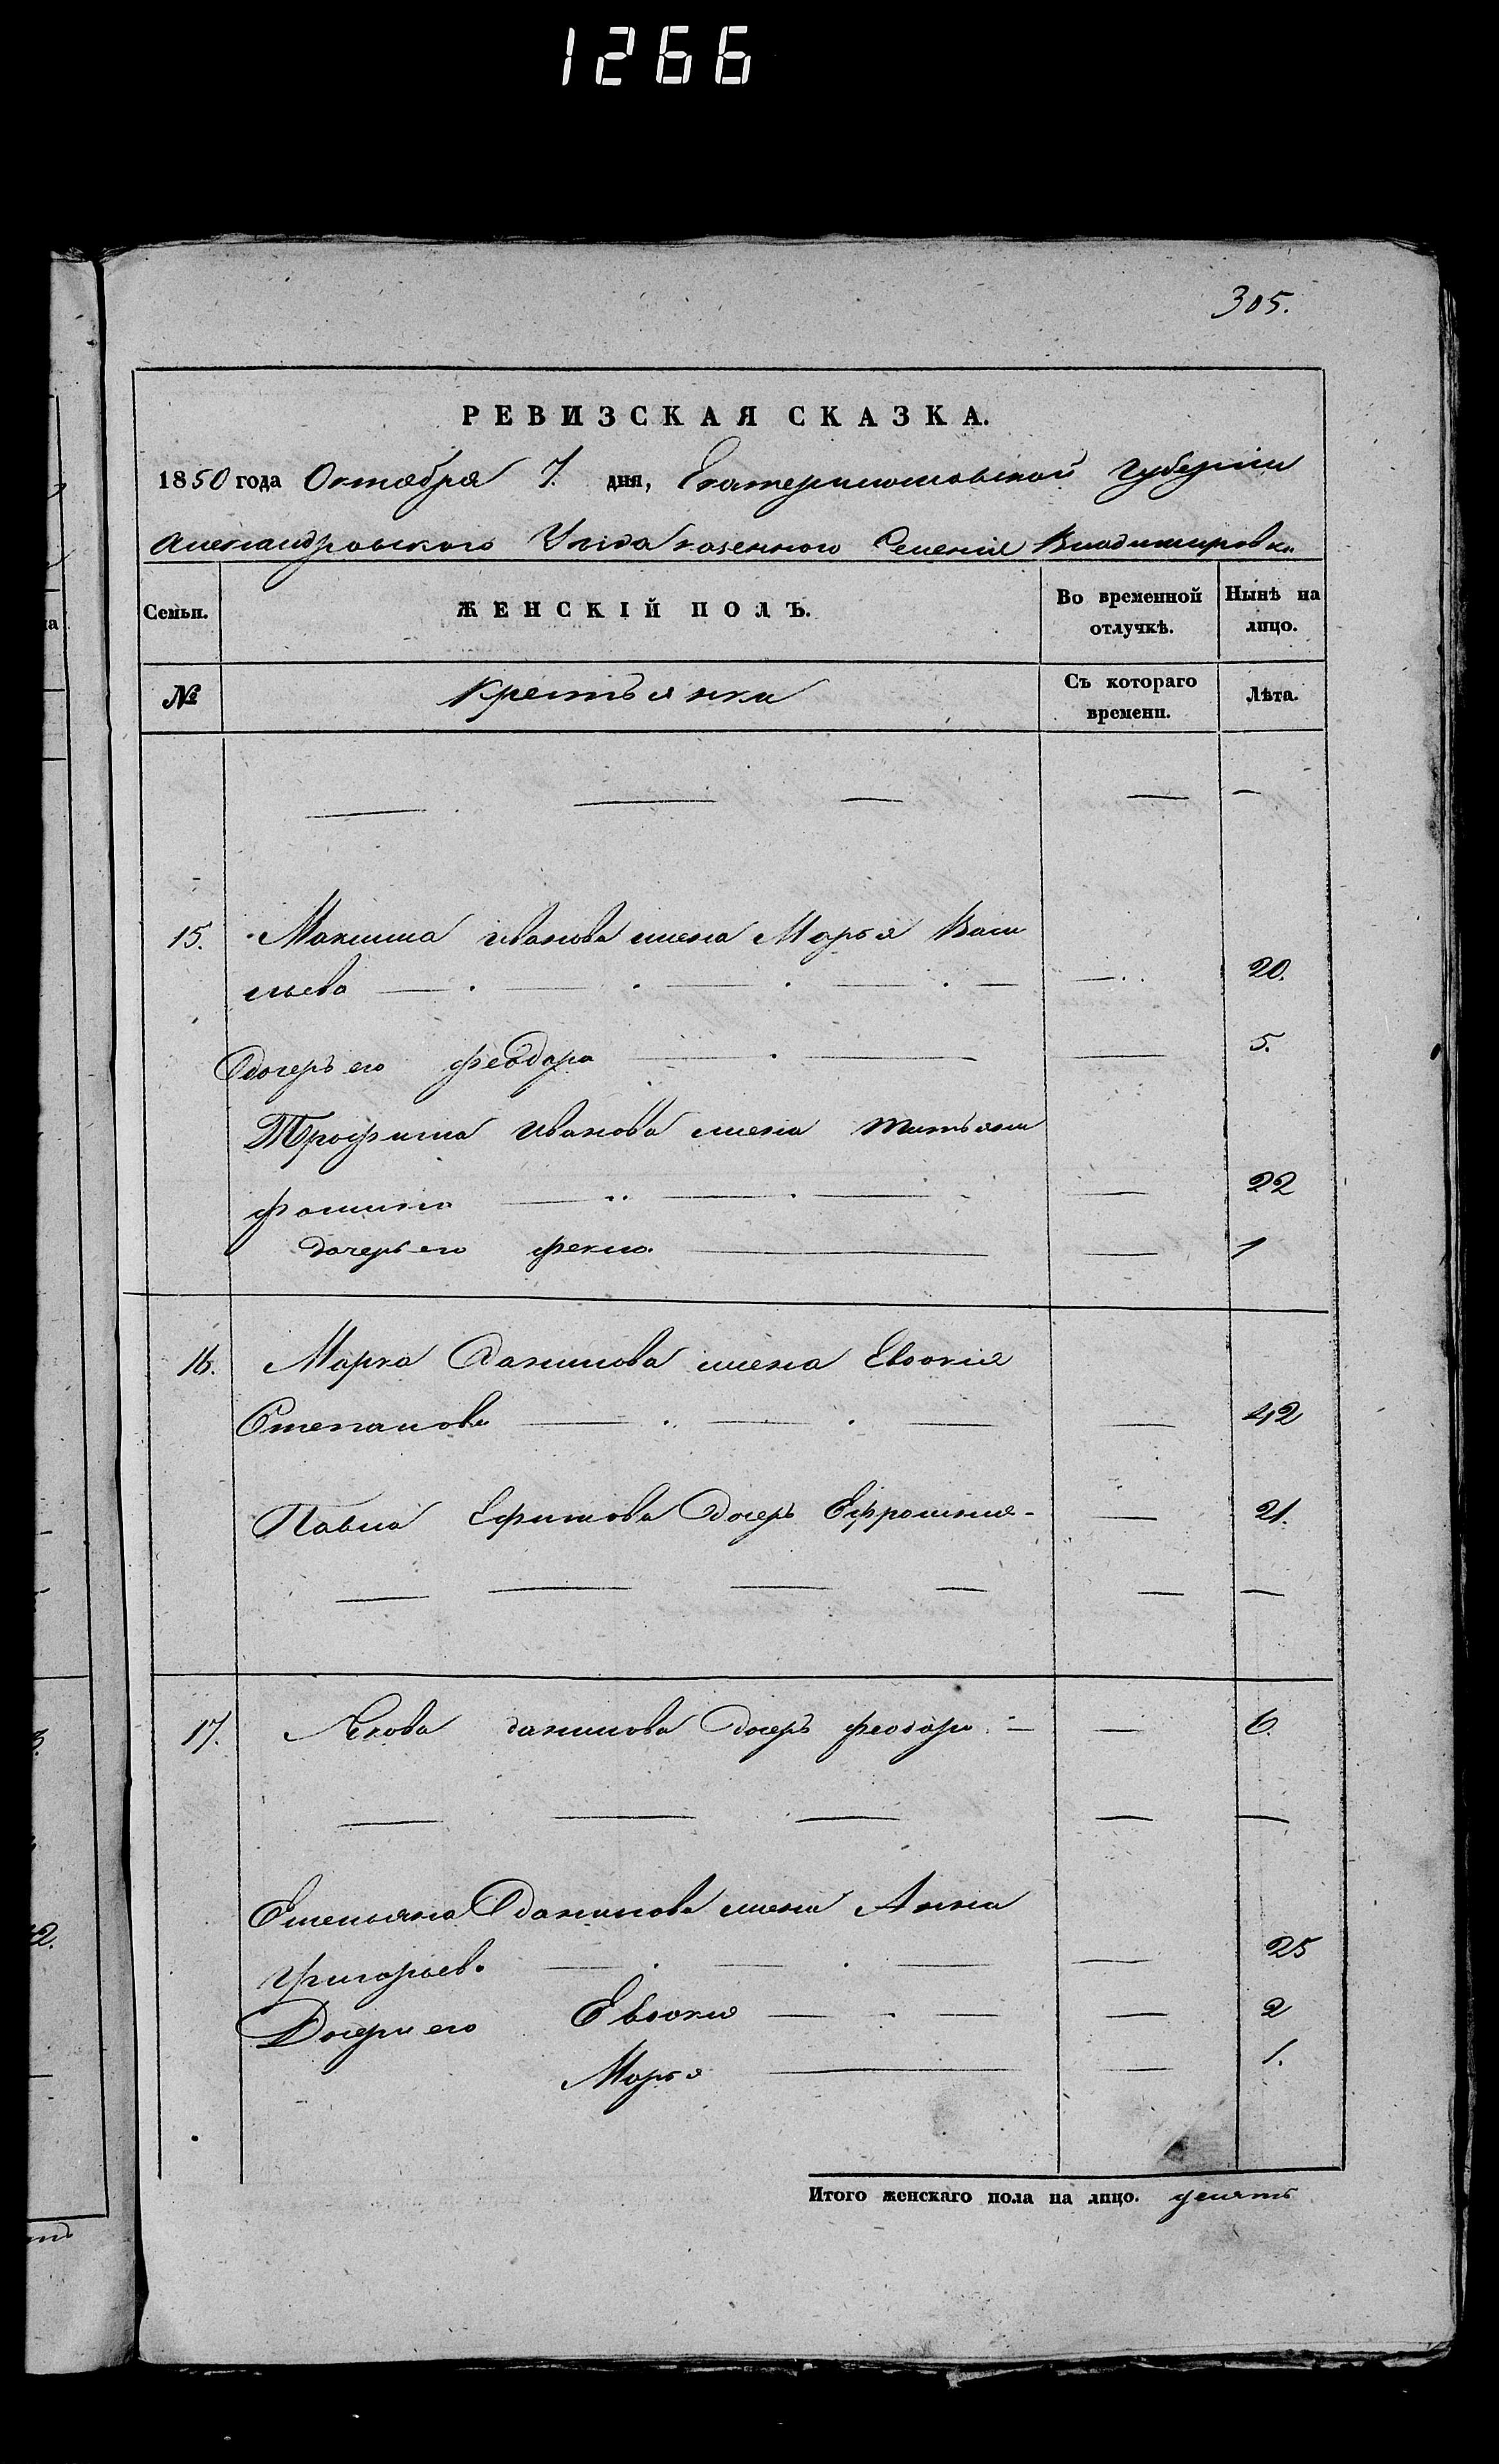 1266
305.
РЕВИЗСКАЯ СКАЗКА.
1850 года Октября 7. дня, Екатеринославской Губернии
Александровского Уезда казенного Селения Владимировки
Семьи. ЖЕНСКІЙ ПОЛЪ. Во временной отлучкѣ. Нынѣ на лицо.
№ Крестьянки Съ котораго времени. Лѣта.
15. Максима Иванова жена Марья Васи
льева 20.
Дочерь его Феодора 5.
Трофима Иванова жена Татьяна
Фомина 22
дочерь его Фекла 1
16. Марка Данилова жена Евдокія
Степанова 42
Павла Ефимова Дочерь Ефросинія 21.
17. Якова Данилова Дочерь Феодора 6.
Емельяна Данилова жена Анна
Григорьева 25
Дочери его Евдокия 2
Марья 1.
Итого женскаго пола на лицо.